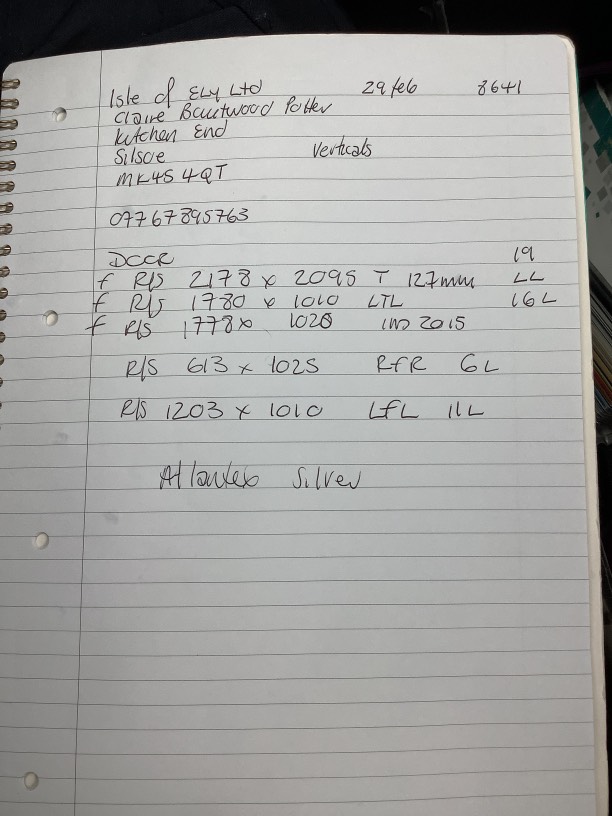 Isle of ELY Ltd 29 feb 8641
Claire Potter
Kitchen End
Silsoe Verticals
MK45 4QT
07767895763
19
f R/S 2178 x 2095 T 127mm LL
f R/S 1780 x 1010 LTL 16L
f R/S 1778 x 1020 2015
R/S 613 x 1025 RFR 6L
R/S 1203 x 1010 LFL 11L
Silver